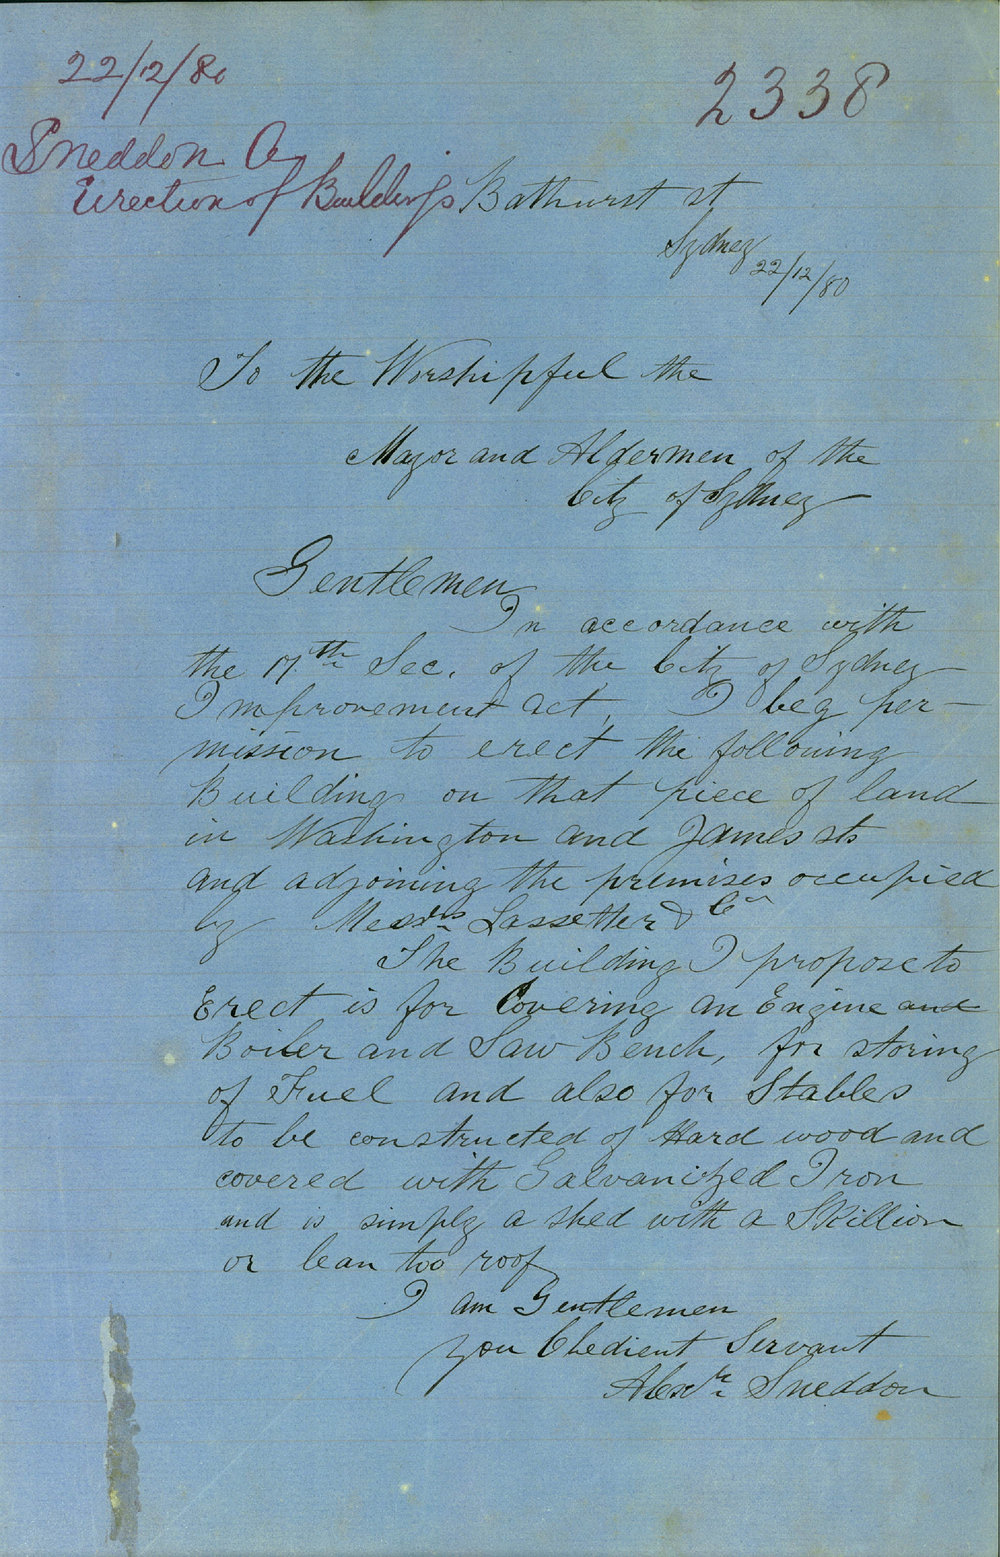 22/12/80
2338
Sneddon A
Erection of Buildings
Bathurst st
Sydney
22/12/80
To the Worshipful the
Mayor and Aldermen of the
City of Sydney
Gentlemen
In accordance with
the 17th Sec. of the City of Sydney
Improvement act, I beg per-
mission to erect the following
Building on that piece of land
in Washington and James sts
and adjoining the premises occupied
by Messrs Lassetter & Co
The Building I propose to
Erect is for Covering an Engine and
Boiler and Saw Bench, for storing
of Fuel and also for Stables
to be constructed of Hard wood and
covered with Galvanized Iron
and is simply a shed with a Skillion
or lean too roof
I am Gentlemen
you Obedient Servant
Alexr Sneddon